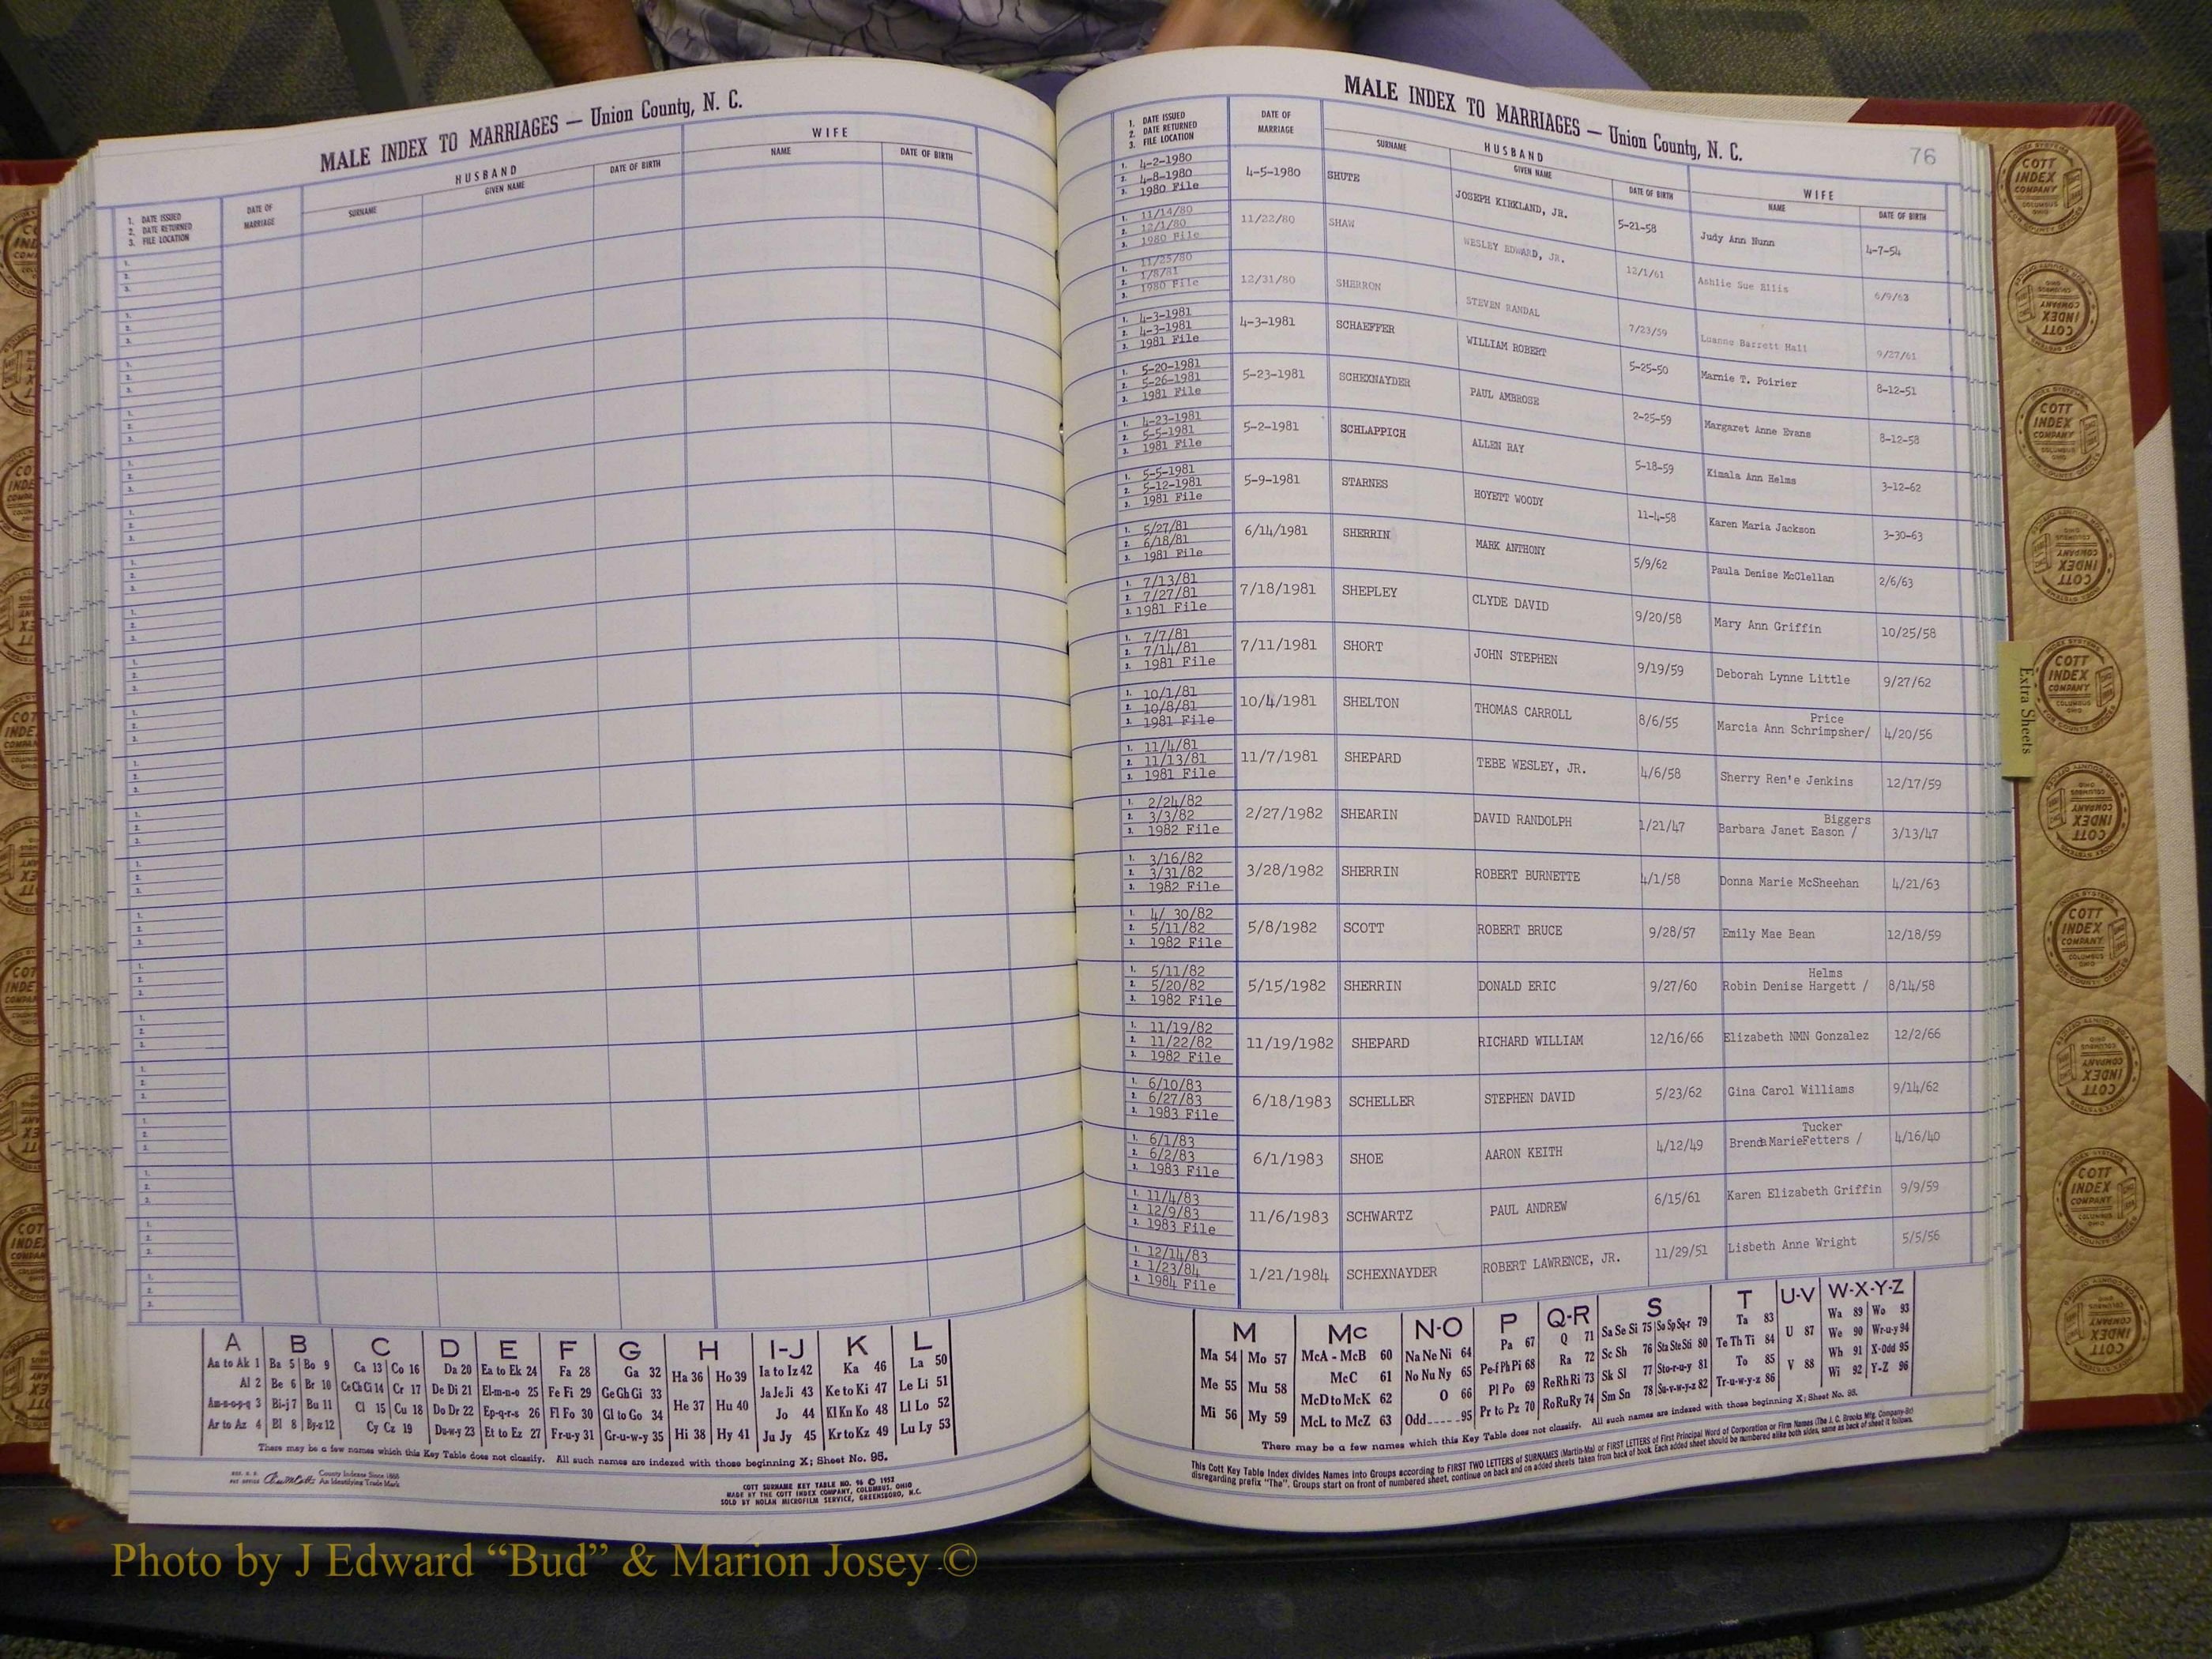 MALE INDEX TO MARRIAGES — Union County, N. C.
1. DATE ISSUED
2. DATE RETURNED
3. FILE LOCATION
DATE OF MARRIAGE
HUSBAND
SURNAME
GIVEN NAME
DATE OF BIRTH
WIFE
NAME
DATE OF BIRTH
A B C D E F G H I-J K L
Aa to Ak 1 Ba 5 Bo 9 Ca 13 Co 16 Da 20 Ea to Ek 24 Fa 28 Ga 32 Ha 36 Ho 39 Ia to Iz 42 Ka 46 La 50
Al 2 Be 6 Br 10 Ce Ch Ci 14 Cr 17 De Di 21 El-m-n-o 25 Fe Fi 29 Ge Gh Gi 33 He 37 Hu 40 Ja Je Ji 43 Ke to Ki 47 Le Li 51
Am-n-o-p-q 3 Bi-j 7 Bu 11 Cl 15 Cu 18 Do Dr 22 Ep-q-r-s 26 Fl Fo 30 Gl to Go 34 Jo 44 Kl Kn Ko 48 Ll Lo 52
Ar to Az 4 Bl 8 By-z 12 Cy Cz 19 Du-w-y 23 Et to Ez 27 Fr-u-y 31 Gr-u-w-y 35 Hi 38 Hy 41 Ju Jy 45 Kr to Kz 49 Lu Ly 53
There may be a few names which this Key Table does not classify. All such names are indexed with those beginning X; Sheet No. 95.
County Indexes Since 1888
An Identifying Trade Mark
COTT SURNAME KEY TABLE NO. 96 © 1952
MADE BY THE COTT INDEX COMPANY, COLUMBUS, OHIO
SOLD BY NOLAN MICROFILM SERVICE, GREENSBORO, N.C.
MALE INDEX TO MARRIAGES — Union County, N. C.
76
1. DATE ISSUED
2. DATE RETURNED
3. FILE LOCATION
DATE OF MARRIAGE
HUSBAND
SURNAME
GIVEN NAME
DATE OF BIRTH
WIFE
NAME
DATE OF BIRTH
1. 4-2-1980
2. 4-8-1980
3. 1980 File
4-5-1980 SHUTE JOSEPH KIRKLAND, JR. 5-21-58 Judy Ann Nunn 4-7-54
1. 11/14/80
2. 12/1/80
3. 1980 File
11/22/80 SHAW WESLEY EDWARD, JR. 12/1/61 Ashlie Sue Ellis 6/9/63
1. 11/25/80
2. 1/8/81
3. 1980 File
12/31/80 SHERRON STEVEN RANDAL 7/23/59 Luanne Barrett Hall 9/27/61
1. 4-3-1981
2. 4-3-1981
3. 1981 File
4-3-1981 SCHAEFFER WILLIAM ROBERT 5-25-50 Marnie T. Poirier 8-12-51
1. 5-20-1981
2. 5-26-1981
3. 1981 File
5-23-1981 SCHEXNAYDER PAUL AMBROSE 2-25-59 Margaret Anne Evans 8-12-58
1. 4-23-1981
2. 5-5-1981
3. 1981 File
5-2-1981 SCHLAPPICH ALLEN RAY 5-18-59 Kimala Ann Helms 3-12-62
1. 5-5-1981
2. 5-12-1981
3. 1981 File
5-9-1981 STARNES HOYETT WOODY 11-4-58 Karen Maria Jackson 3-30-63
1. 5/27/81
2. 6/18/81
3. 1981 File
6/14/1981 SHERRIN MARK ANTHONY 5/9/62 Paula Denise McClellan 2/6/63
1. 7/13/81
2. 7/27/81
3. 1981 File
7/18/1981 SHEPLEY CLYDE DAVID 9/20/58 Mary Ann Griffin 10/25/58
1. 7/7/81
2. 7/14/81
3. 1981 File
7/11/1981 SHORT JOHN STEPHEN 9/19/59 Deborah Lynne Little 9/27/62
1. 10/1/81
2. 10/8/81
3. 1981 File
Price
10/4/1981 SHELTON THOMAS CARROLL 8/6/55 Marcia Ann Schrimpsher/ 4/20/56
1. 11/4/81
2. 11/13/81
3. 1981 File
11/7/1981 SHEPARD TEBE WESLEY, JR. 4/6/58 Sherry Ren'e Jenkins 12/17/59
1. 2/24/82
2. 3/3/82
3. 1982 File
Biggers
2/27/1982 SHEARIN DAVID RANDOLPH 1/21/47 Barbara Janet Eason / 3/13/47
1. 3/16/82
2. 3/31/82
3. 1982 File
3/28/1982 SHERRIN ROBERT BURNETTE 4/1/58 Donna Marie McSheehan 4/21/63
1. 4/ 30/82
2. 5/11/82
3. 1982 File
5/8/1982 SCOTT ROBERT BRUCE 9/28/57 Emily Mae Bean 12/18/59
1. 5/11/82
2. 5/20/82
3. 1982 File
Helms
5/15/1982 SHERRIN DONALD ERIC 9/27/60 Robin Denise Hargett / 8/14/58
1. 11/19/82
2. 11/22/82
3. 1982 File
11/19/1982 SHEPARD RICHARD WILLIAM 12/16/66 Elizabeth NMN Gonzalez 12/2/66
1. 6/10/83
2. 6/27/83
3. 1983 File
6/18/1983 SCHELLER STEPHEN DAVID 5/23/62 Gina Carol Williams 9/14/62
1. 6/1/83
2. 6/2/83
3. 1983 File
Tucker
6/1/1983 SHOE AARON KEITH 4/12/49 Brenda Marie Fetters / 4/16/40
1. 11/4/83
2. 12/9/83
3. 1983 File
11/6/1983 SCHWARTZ PAUL ANDREW 6/15/61 Karen Elizabeth Griffin 9/9/59
1. 12/14/83
2. 1/23/84
3. 1984 File
1/21/1984 SCHEXNAYDER ROBERT LAWRENCE, JR. 11/29/51 Lisbeth Anne Wright 5/5/56
M Mc N-O P Q-R S T U-V W-X-Y-Z
Ma 54 Mo 57 McA - McB 60 Na Ne Ni 64 Pa 67 Q 71 Sa Se Si 75 So Sp Sq-r 79 Ta 83 U 87 Wa 89 Wo 93
Me 55 Mu 58 McC 61 No Nu Ny 65 Pe-f Ph Pi 68 Ra 72 Sc Sh 76 Sta Ste Sti 80 Te Th Ti 84 We 90 Wr-u-y 94
McD to McK 62 O 66 Pl Po 69 Re Rh Ri 73 Sk Sl 77 Sto-r-u-y 81 To 85 V 88 Wh 91 X-Odd 95
Mi 56 My 59 McL to McZ 63 Odd 95 Pr to Pz 70 Ro Ru Ry 74 Sm Sn 78 Su-v-w-y-z 82 Tr-u-w-y-z 86 Wi 92 Y-Z 96
There may be a few names which this Key Table does not classify. All such names are indexed with those beginning X; Sheet No. 95.
This Cott Key Table Index divides Names into Groups according to FIRST TWO LETTERS of SURNAMES (Martin-Ma) or FIRST LETTERS of First Principal Word of Corporation or Firm Names (The J. C. Brooks Mfg. Company-Br)
disregarding prefix "The". Groups start on front of numbered sheet, continue on back and on added sheets taken from back of book. Each added sheet should be numbered alike both sides, same as back of sheet it follows.
Extra Sheets
COTT INDEX COMPANY COLUMBUS OHIO
Photo by J Edward “Bud” & Marion Josey ©